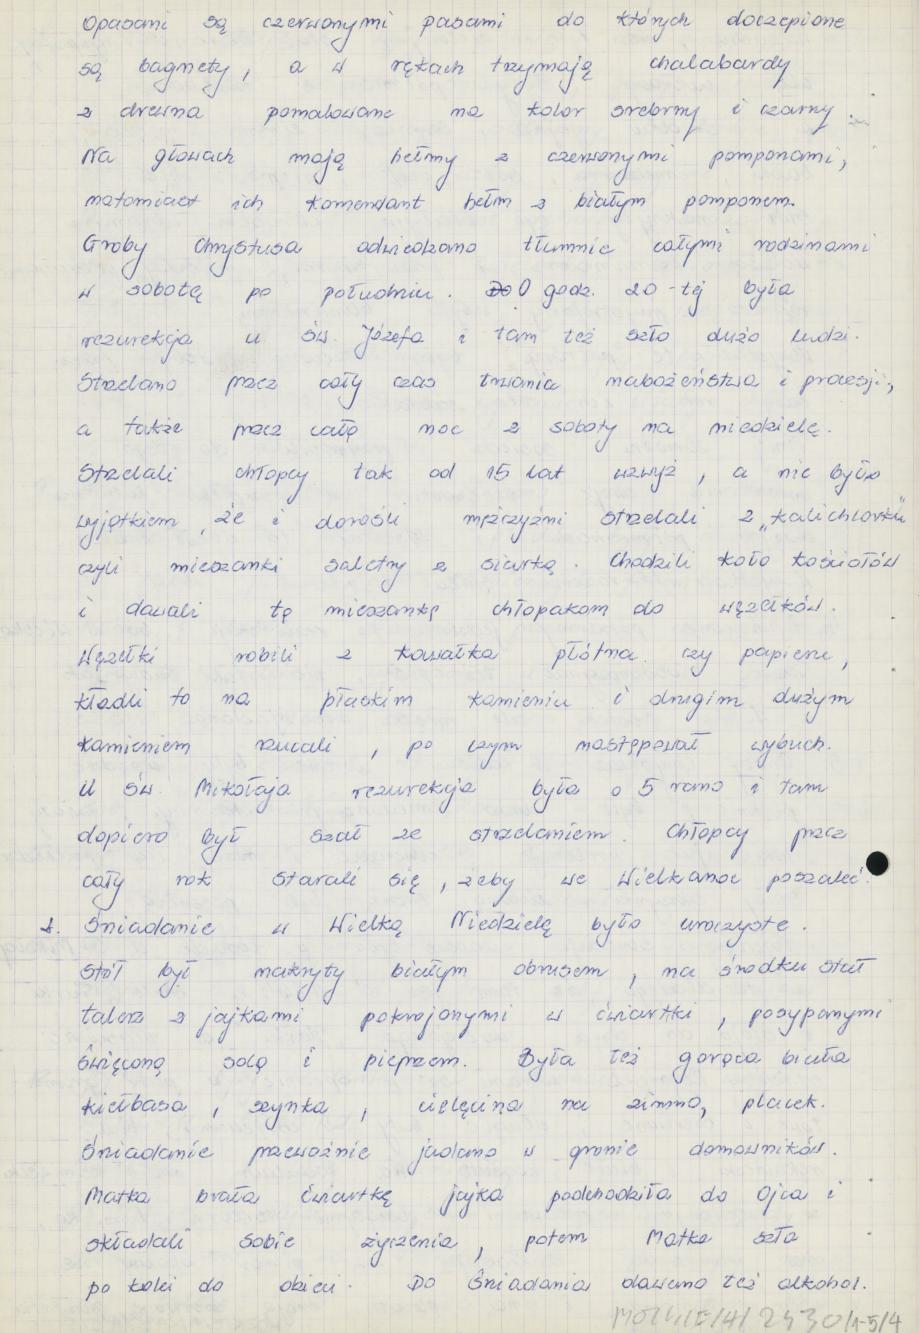 Opasani są czerwonymi pasami do których doczepione
są bagnety, a w rękach trzymają chalabardy
z drewna pomalowane na kolor srebrny i czarny.
Na głowach mają hełmy z czerwonymi pomponami,
natomiast ich komendant hełm z białym pomponem.
Groby Chrystusa odwiedzano tłumnie całymi rodzinami
w sobotę po południu. O godz. 20-tej była
rezurekcja u św. Józefa i tam też szło dużo ludzi.
Strzelano przez cały czas trwania nabożeństwa i procesji,
a także przez całą noc z soboty na niedzielę.
Strzelali chłopcy tak od 15 lat wzwyż, a nie było
wyjątkiem, że i dorośli mężczyźni strzelali z "kalichlorku"
czyli mieszanki saletry z siarką. Chodzili koło kościołów
i dawali tę mieszankę chłopakom do węzełków.
Węzełki robili z kawałka płótna czy papieru,
kładli to na płaskim kamieniu i drugim dużym
kamieniem rzucali, po czym następował wybuch.
U św. Mikołaja rezurekcja była o 5 rano i tam
dopiero był szał ze strzelaniem. Chłopcy przez
cały rok starali się, żeby we Wielkanoc poszaleć.
Śniadanie w Wielką Niedzielę było uroczyste.
Stół był nakryty białym obrusem, na środku stał
talerz z jajkami pokrojonymi w ćwiartki, posypanymi
święconą solą i pieprzem. Była też gorąca biała
kiełbasa, szynka, cielęcina na zimno, placek.
Śniadanie przeważnie jadano w gronie domowników.
Matka brała ćwiartkę jajka podchodziła do Ojca i
składali sobie życzenia, potem Matka szła
po kolei do dzieci. Do śniadania dawano też alkohol.
2430/1-5/4